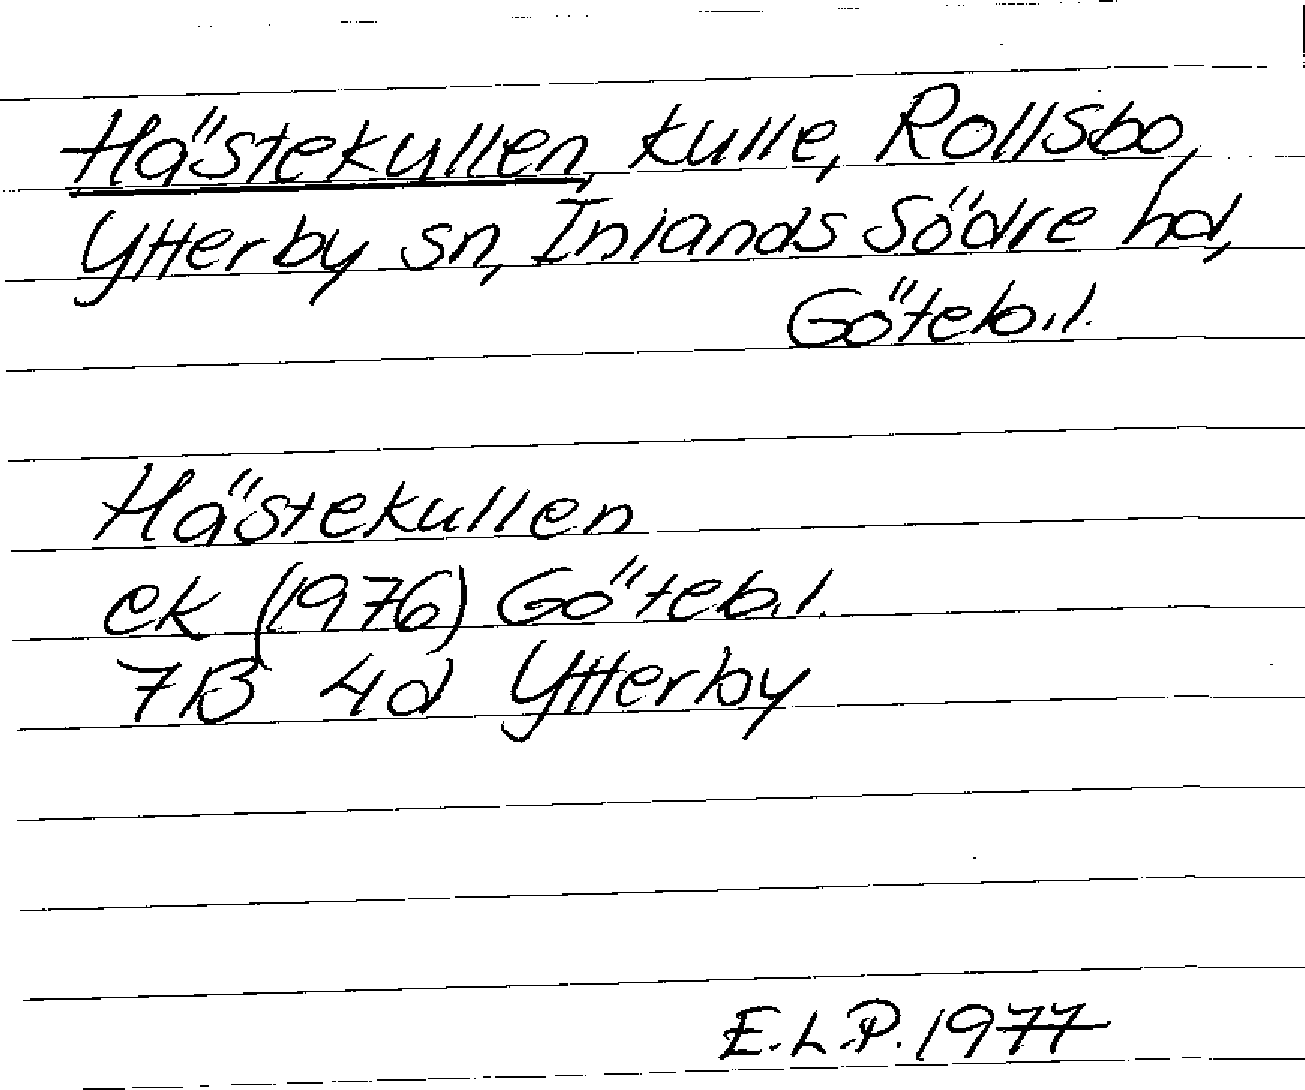 Hästekullen, kulle, Rollsbo,
Ytterby sn, Inlands Södre hd,
Göteb.l.
Hästekullen
ek (1976) Göteb.l.
7B 4d Ytterby
E.L.P. 1977